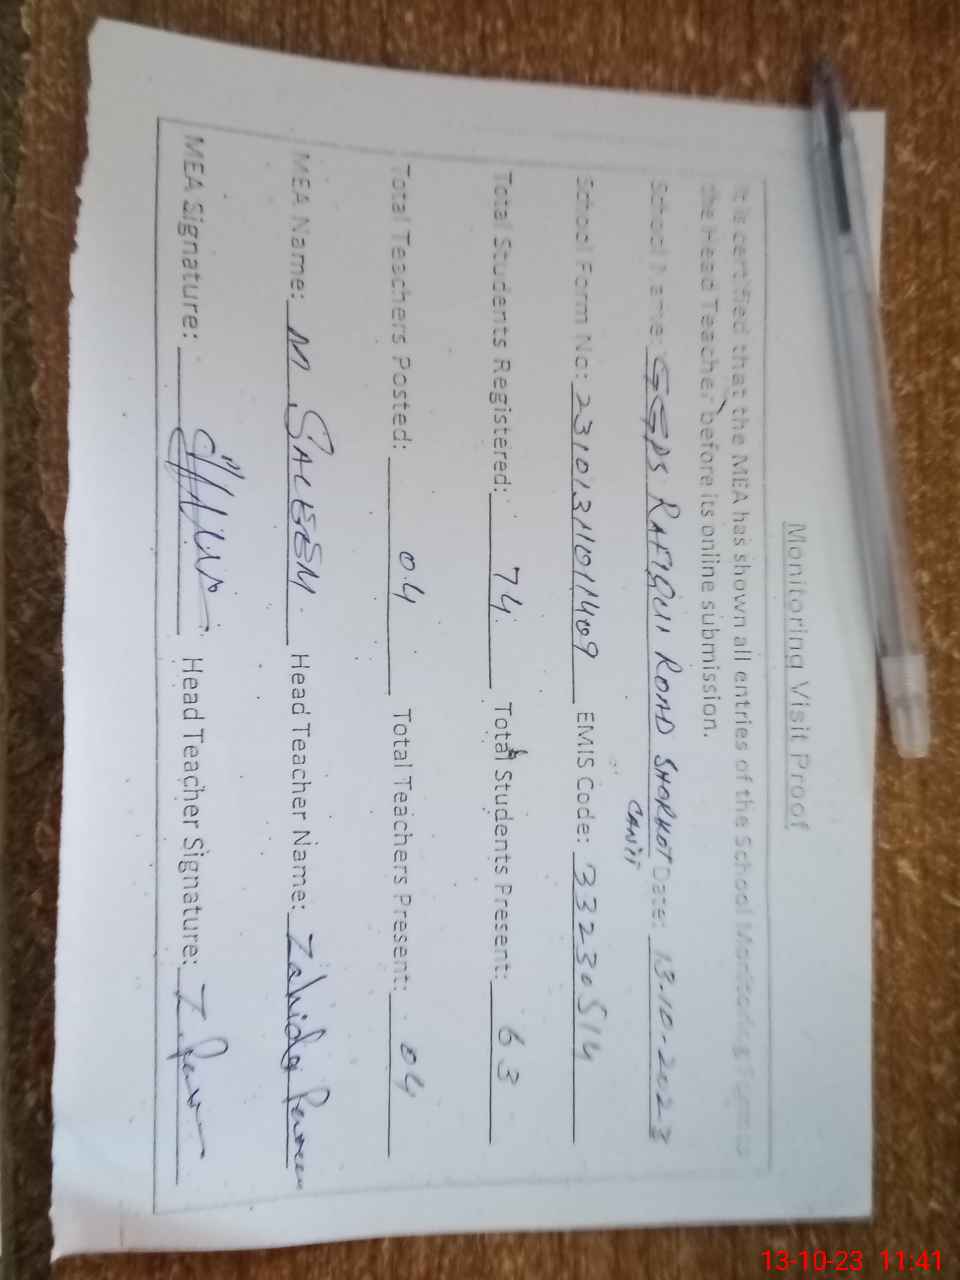 Monitoring Visit Proof
It is certified that the MEA has shown all entries of the School Monitoring Form to
the Head Teacher before its online submission.
School Name: GGPS RAFIQUI ROAD SHORKOT Date: 13-10-2023
CANTT
School Form No: 23101311011409 EMIS Code: 33230514
Total Students Registered: 74. Total Students Present: 63
Total Teachers Posted: 04 Total Teachers Present: 04
MEA Name: M SALEEM. Head Teacher Name: Zahida Parveen
MEA Signature: Head Teacher Signature: Z.
13-10-23 11:41